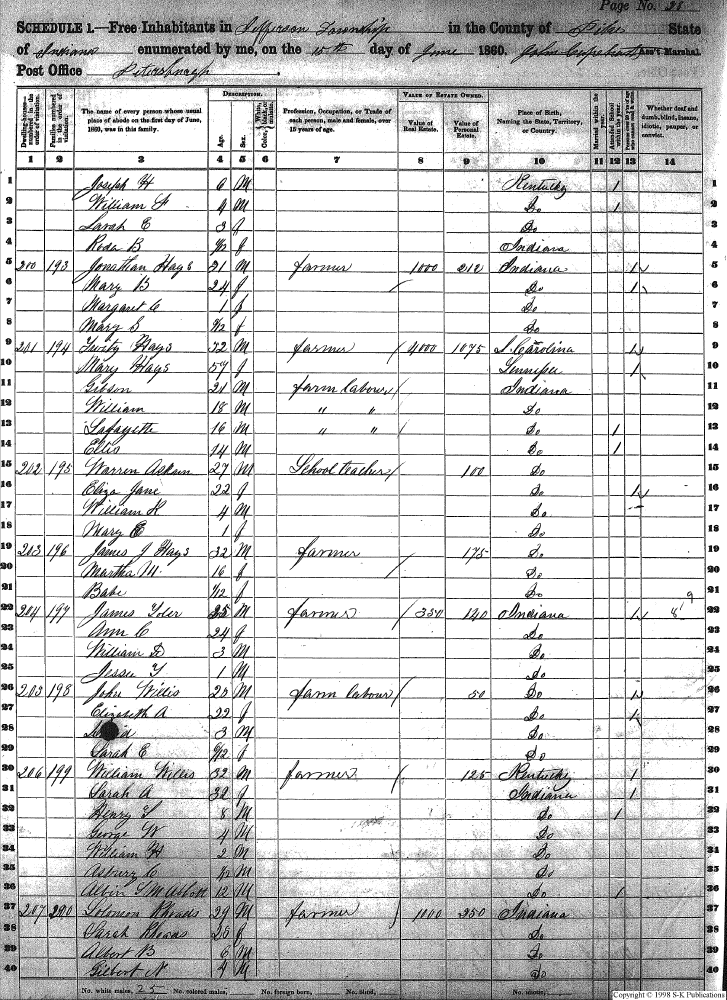 Page No. 28
SCHEDULE 1.—Free Inhabitants in Jefferson Township in the County of Pike State
of Indiana enumerated by me, on the 15th day of June 1860. John Ass't Marshal
Post Office Petersburgh.
DESCRIPTION. VALUE OF ESTATE OWNED.
Dwelling-houses—numbered in the order of visitation. Families numbered in the order of visitation. The name of every person whose usual place of abode on the first day of June, 1860, was in this family. Age. Sex. Color, Profession, Occupation, or Trade of each person, male and female, over 15 years of age. Value of Real Estate. Value of Personal Estate. Place of Birth, Naming the State, Territory, or Country. Married within the year. Attended School within the year. Whether deaf and dumb, blind, insane, idiotic, pauper, or convict.
1 2 3 4 5 6 7 8 9 10 11 12 13 14
1 Joseph H 6 M Kentucky 1 1
2 William F 4 M Do 1 2
3 Sarah E 3 f Do 3
4 Roda B f Indiana 4
5 200 193 Jonathan Hays 21 M farmer 1000 212 Indiana 1 5
6 Mary B 24 f Do 1 6
7 Margaret 1 f Do 7
8 Mary S f Do 8
9 201 194 Hays 52 M farmer 4000 1075 S. Carolina 1 9
10 Mary Hays 57 f 1 10
11 Gibson 21 M farm labour Indiana 11
12 William 18 M " " Do 12
13 Lafayette 16 M " " Do 1 13
14 Ellis 14 M Do 1 14
15 202 195 Warren Askin 27 M School teacher 100 Do 15
16 Eliza Jane 22 f Do 1 16
17 William 4 M Do 17
18 Mary E 1 f Do 18
19 203 196 James J Hays 32 M farmer 175 Do 19
20 Martha M. 16 f Do 20
21 Babe f Do 21
22 204 197 James Toler 25 M farmer 350 140 Indiana 1 22
23 Ann C 24 f Do 23
24 William D 3 M Do 24
25 Jesse Y 1 M Do 25
26 205 198 John Willis 25 M farm labour 50 Do 1 26
27 Elizabeth A 22 f Do 1 27
28 3 M Do 28
29 Sarah E f Do 29
30 206 199 William Willis 32 M farmer 125 Kentucky 1 30
31 Sarah A 32 f Indiana 1 31
32 Henry 8 M Do 1 32
33 George W 4 M Do 33
34 William H 2 M Do 34
35 Asbury C M Do 35
36 Albin 12 M Do 1 36
37 207 200 Solomon Rhoads 29 M farmer 1000 250 Indiana 37
38 Sarah Rhoads 25 f Do 38
39 Albert B 6 M Do 39
40 Gilbert N 4 M Do 40
No. white males, 25 No. colored males, No. foreign born, No. blind, No. idiotic,
Copyright © 1998 S-K Publications